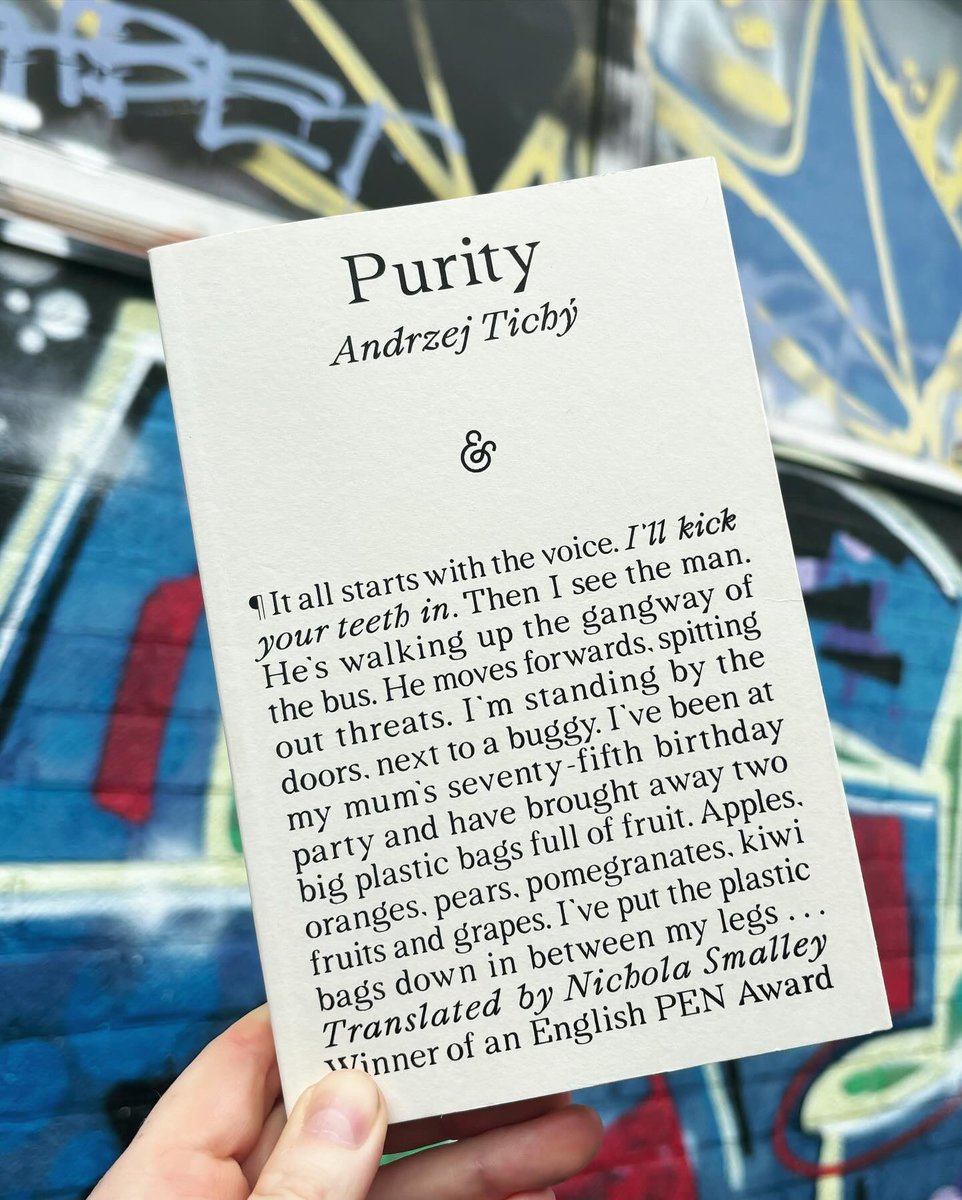 Purity
Andrzej Tichý
&
¶ It all starts with the voice. I'll kick
your teeth in. Then I see the man.
He's walking up the gangway of
the bus. He moves forwards, spitting
out threats. I'm standing by the
doors, next to a buggy. I've been at
my mum's seventy-fifth birthday
party and have brought away two
big plastic bags full of fruit. Apples,
oranges, pears, pomegranates, kiwi
fruits and grapes. I've put the plastic
bags down in between my legs ...
Translated by Nichola Smalley
Winner of an English PEN Award